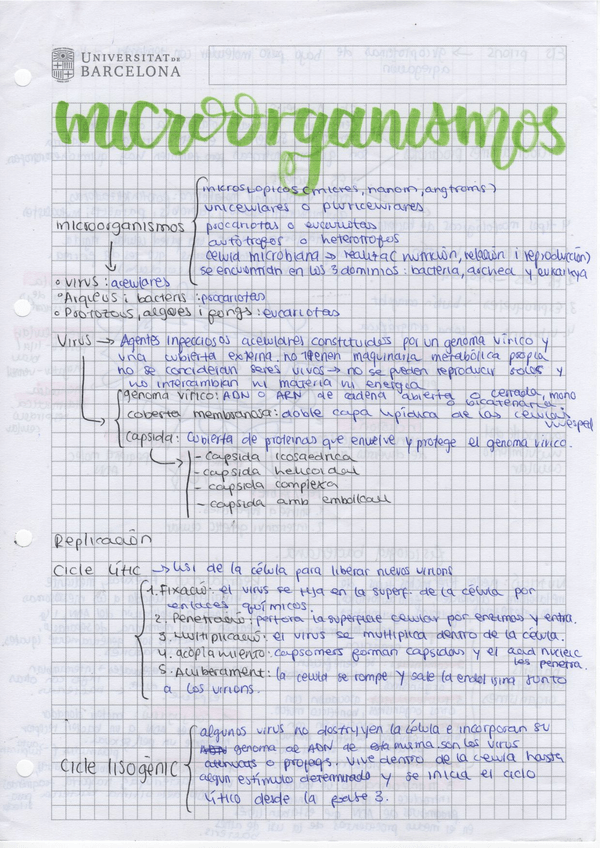 UNIVERSITAT DE
BARCELONA
microorganismos
microscopicos (micres, nanom, angtroms)
unicelulares o pluricelulares
microorganismos
procariotas o eucariotas
autòtrofos o heterotrofos
celula microbiana → realitza (nutrición, relación i reproducción)
se encuentran en los 3 dominios: bacteria, archea y eukarya
• virus: acelulares
• Arqueus i bacteris: procariotas
• Protozous, algues i fongs: eucariotas
Virus → Agentes infecciosos acelulares constituidos por un genoma vírico y
una cubierta externa. no tienen maquinaria metabólica propia
no se concideran seres vivos → no se pueden reproducir solos y
no intercambian ni materia ni energía
genoma vírico: ADN o ARN de cadena abierta o cerrada, mono
o bicatenaria
coberta membranosa: doble capa lipídica de las celulas
huesped
capsida: Cubierta de proteinas que envuelve y protege el genoma vírico.
- capsida icosaedrica
- capsida helicoidal
- capsida complexa
- capsida amb embolcall
Replicación
Cicle lític → lisi de la célula para liberar nuevos virions
1. Fixació: el virus se fija en la superf. de la célula por
enlaces químicos.
2. Penetració: perfora la superficie celular por enzimas y entra.
3. Multiplicació: el virus se multiplica dentro de la célula.
4. acoplamiento: capsomers forman capsidas y el acid nucleic
les penetra.
5. Aliberament: la celula se rompe y sale la endolisina junto
a los virions.
algunos virus no destruyen la célula e incorporan su
genoma al ADN de esta misma. son los virus
atenuats o profags. Vive dentro de la celula hasta
Cicle lisogènic
algun estímulo determinado y se inicia el ciclo
lítico desde la fase 3.